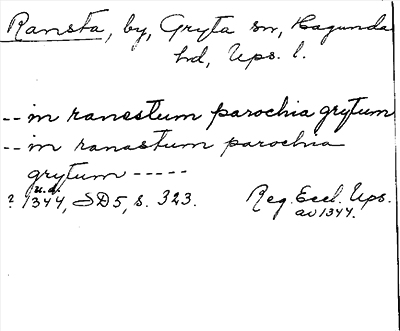 Ransta, by, Gryta sn, Hagunda
hd, Ups. l.
-- in ranestum parochia grytum
-- in ranastum parochia
grytum -----
u.d.
? 1344, SD5, s. 323. Reg. Eccl. Ups.
av 1344.